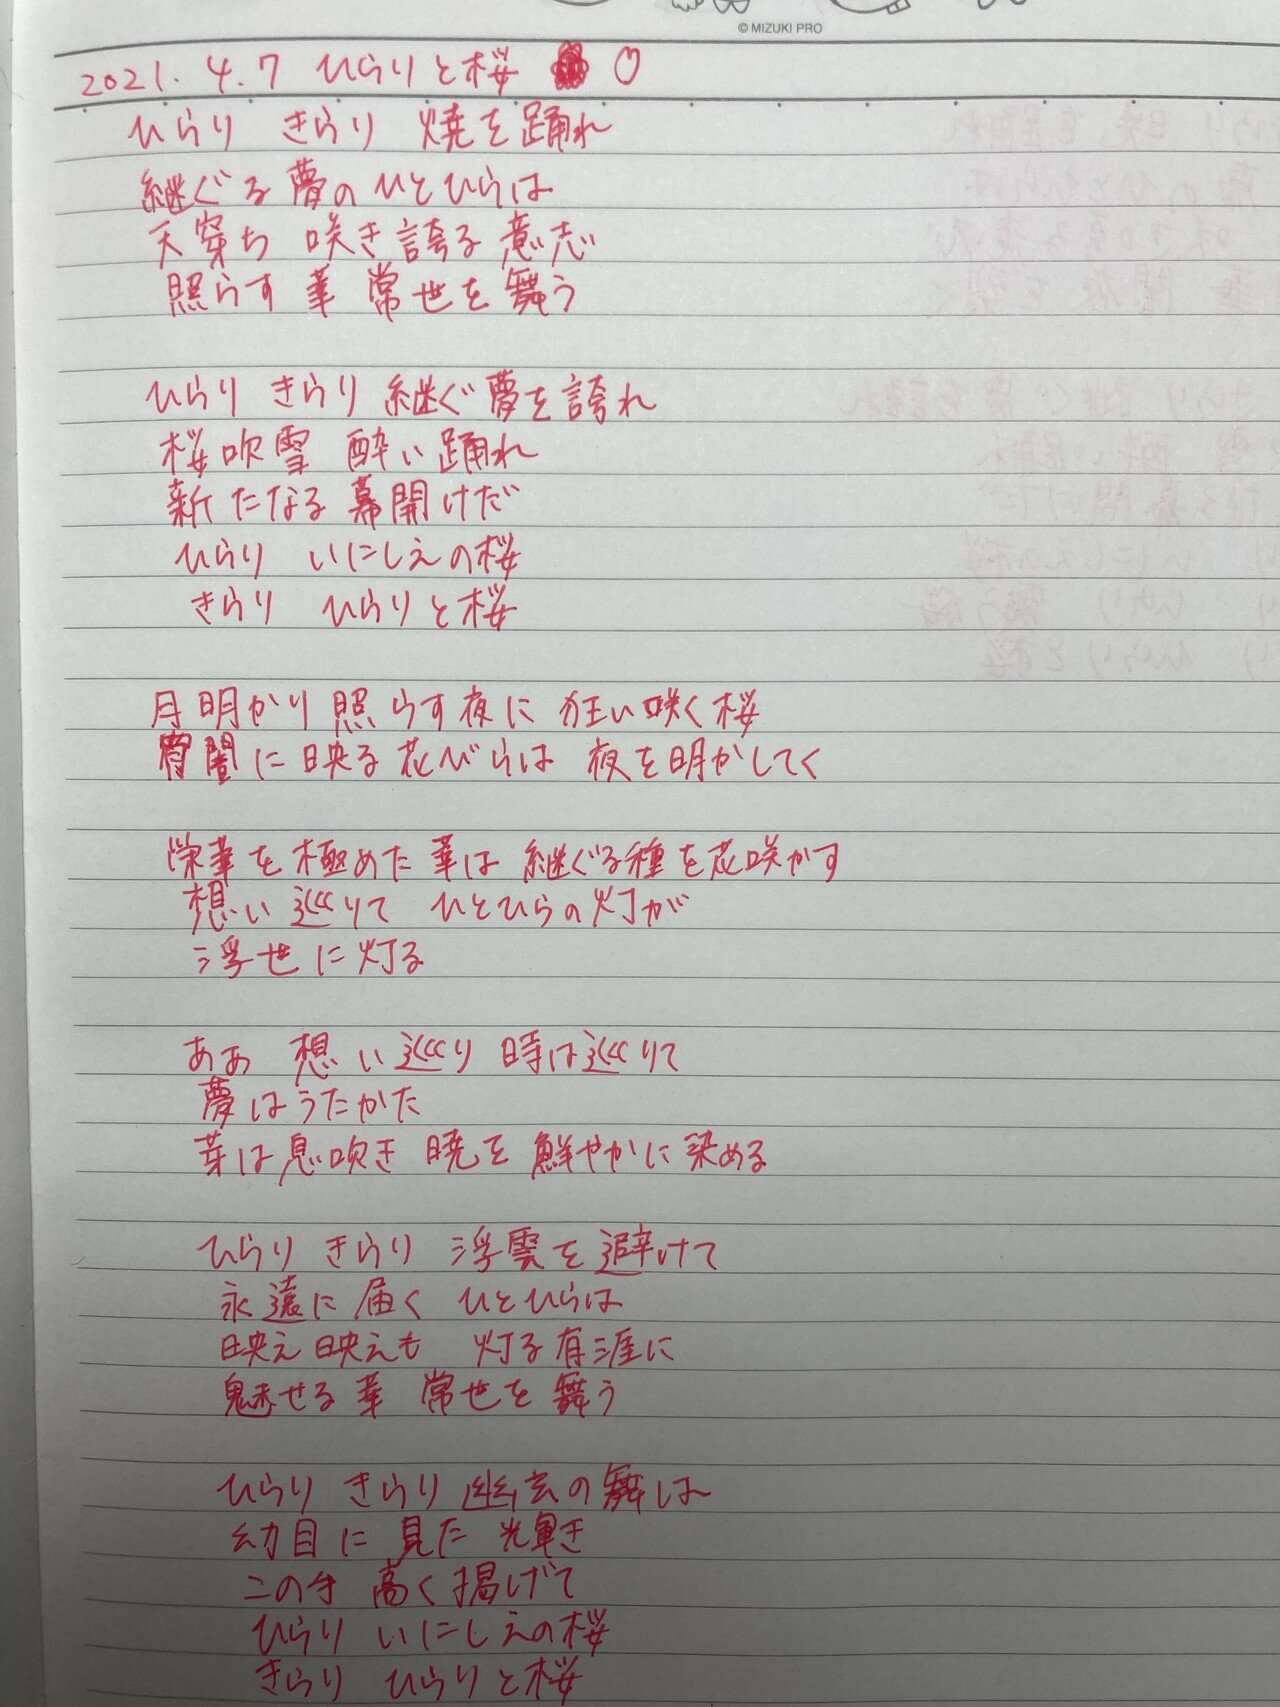 © MIZUKI PRO
2021.4.7 ひらりと桜
ひらり きらり 焼を踊れ
継ぐる夢のひとひらは
天穿ち 咲き誇る意志
照らす華 常世を舞う
ひらり きらり 継ぐ夢を誇れ
桜吹雪 酔い踊れ
新たなる幕開けだ
ひらり いにしえの桜
きらり ひらりと桜
月明かり照らす夜に狂い咲く桜
宵闇に映る花びらは 夜を明かしてく
栄華を極めた華は 継ぐる種を花咲かす
想い巡りて ひとひらの灯が
浮世に灯る
ああ 想い巡り 時は巡りて
夢はうたかた
芽は息吹き 暁を鮮やかに染める
ひらり きらり 浮雲を避けて
永遠に届く ひとひらは
映え映えも 灯る有涯に
魅せる華 常世を舞う
ひらり きらり 幽玄の舞は
幼目に見た 光輝き
この手 高く掲げて
ひらり いにしえの桜
きらり ひらりと桜